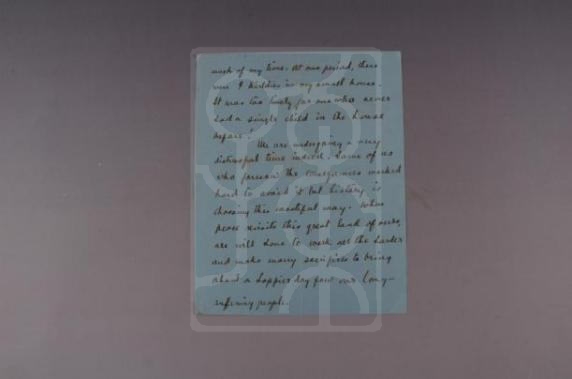 much of my time. At one period, there
were 9 kiddies in my small house.
It was too lively for one who never
had a single child in the house
before!
We are undergoing a very
distressful time indeed. Some of us
who foresaw the consequences worked
hard to avoid it but history is
choosing this wasteful way. When
peace revisits this great land of ours,
we will have to work all the harder
and make many sacrifices to bring
about a happier day for our long-
suffering people.